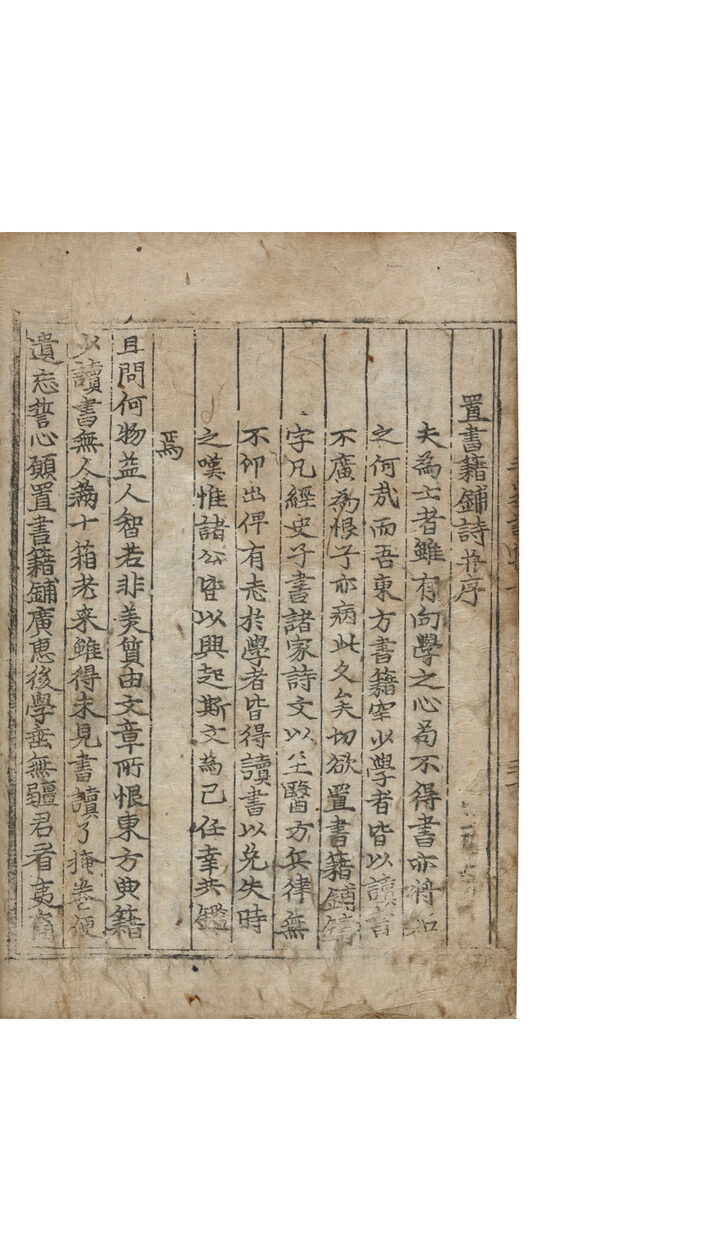 置書籍鋪詩并序
夫為士者雖有向學之心苟不得書亦將如
之何哉而吾東方書籍罕少學者皆以讀書
不廣為恨予亦病此久矣切欲置書籍鋪鑄
字凡經史子書諸家詩文以至醫方兵律無
不印出俾有志於學者皆得讀書以免失時
之嘆惟諸公皆以興起斯文為己任幸共鑑
焉
且問何物益人智若非美質由文章所恨東方典籍
少讀書無人滿十箱老來雖得未見書讀了掩卷便
遺忘誓心願置書籍鋪廣惠後學垂無疆君看夷裔